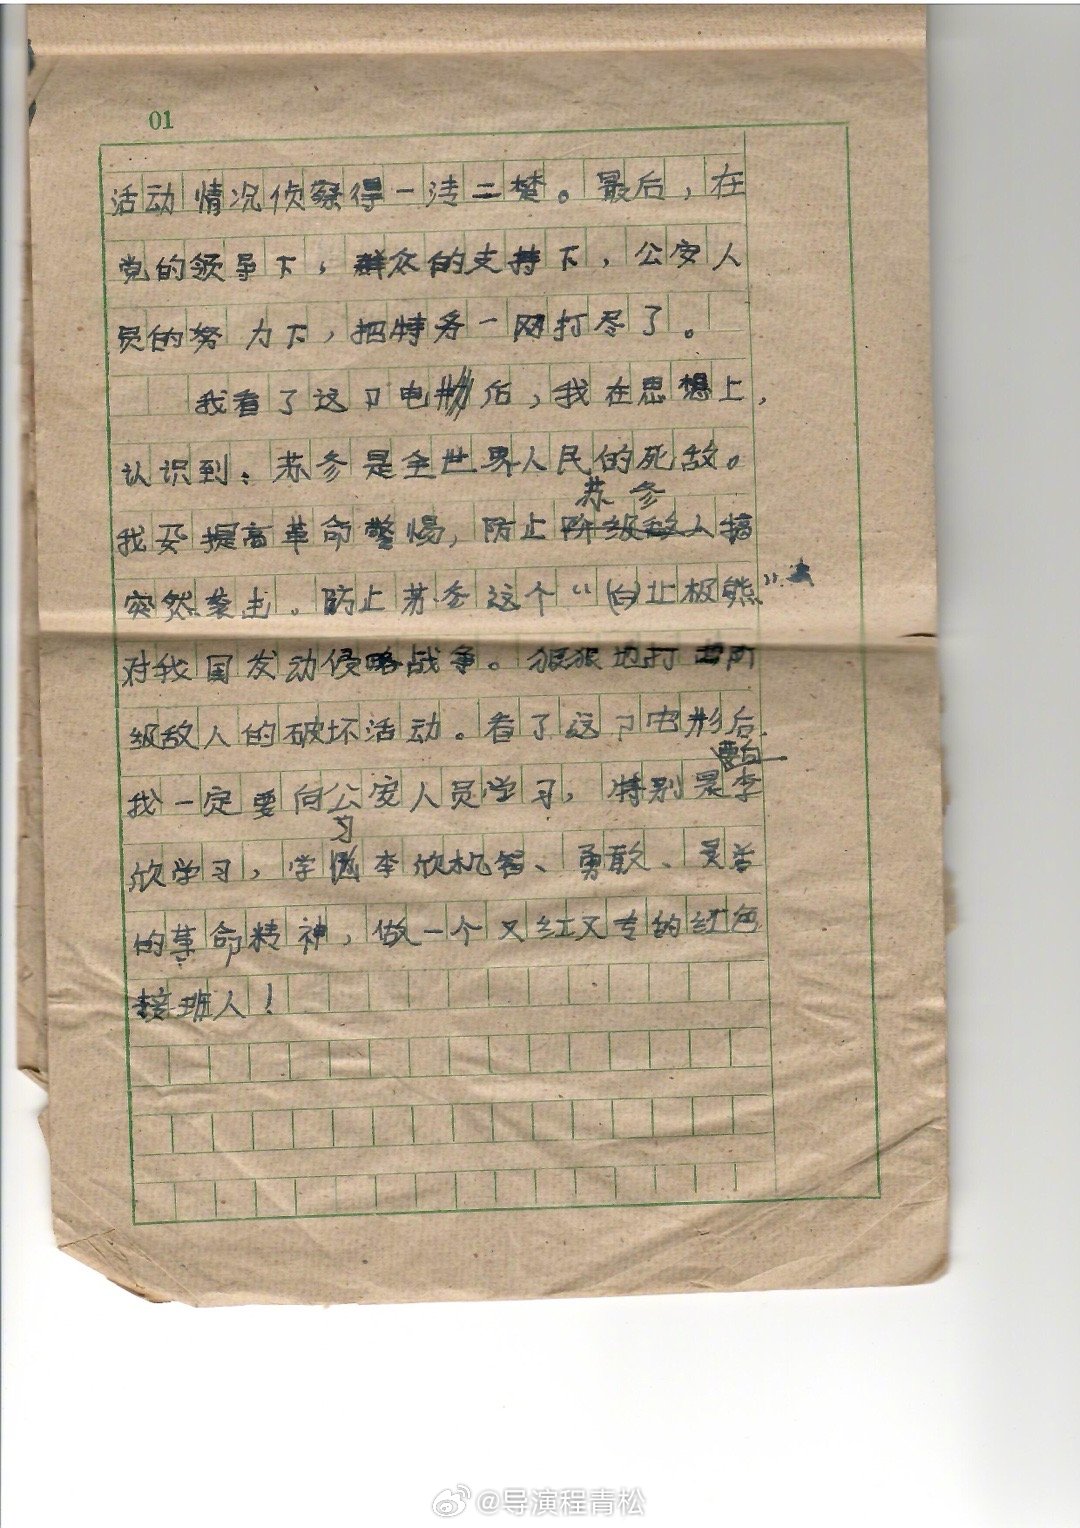 01
活动情况侦察得一清二楚。最后，在
党的领导下，群众的支持下，公安人
员的努力下，把特务一网打尽了。
我看了这卩电影后，我在思想上，
认识到：苏修是全世界人民的死敌。
苏修
我要提高革命警惕，防止阶级敌人搞
突然袭击。防止苏修这个“(白)北极熊”
对我国发动侵略战争。狠狠地打击阶
级敌人的破坏活动。看了这卩电影后
要向
我一定要向公安人员学习，特别是李
习
欣学习，学李欣机智、勇敢、灵活
的革命精神，做一个又红又专的红色
接班人！
@导演程青松